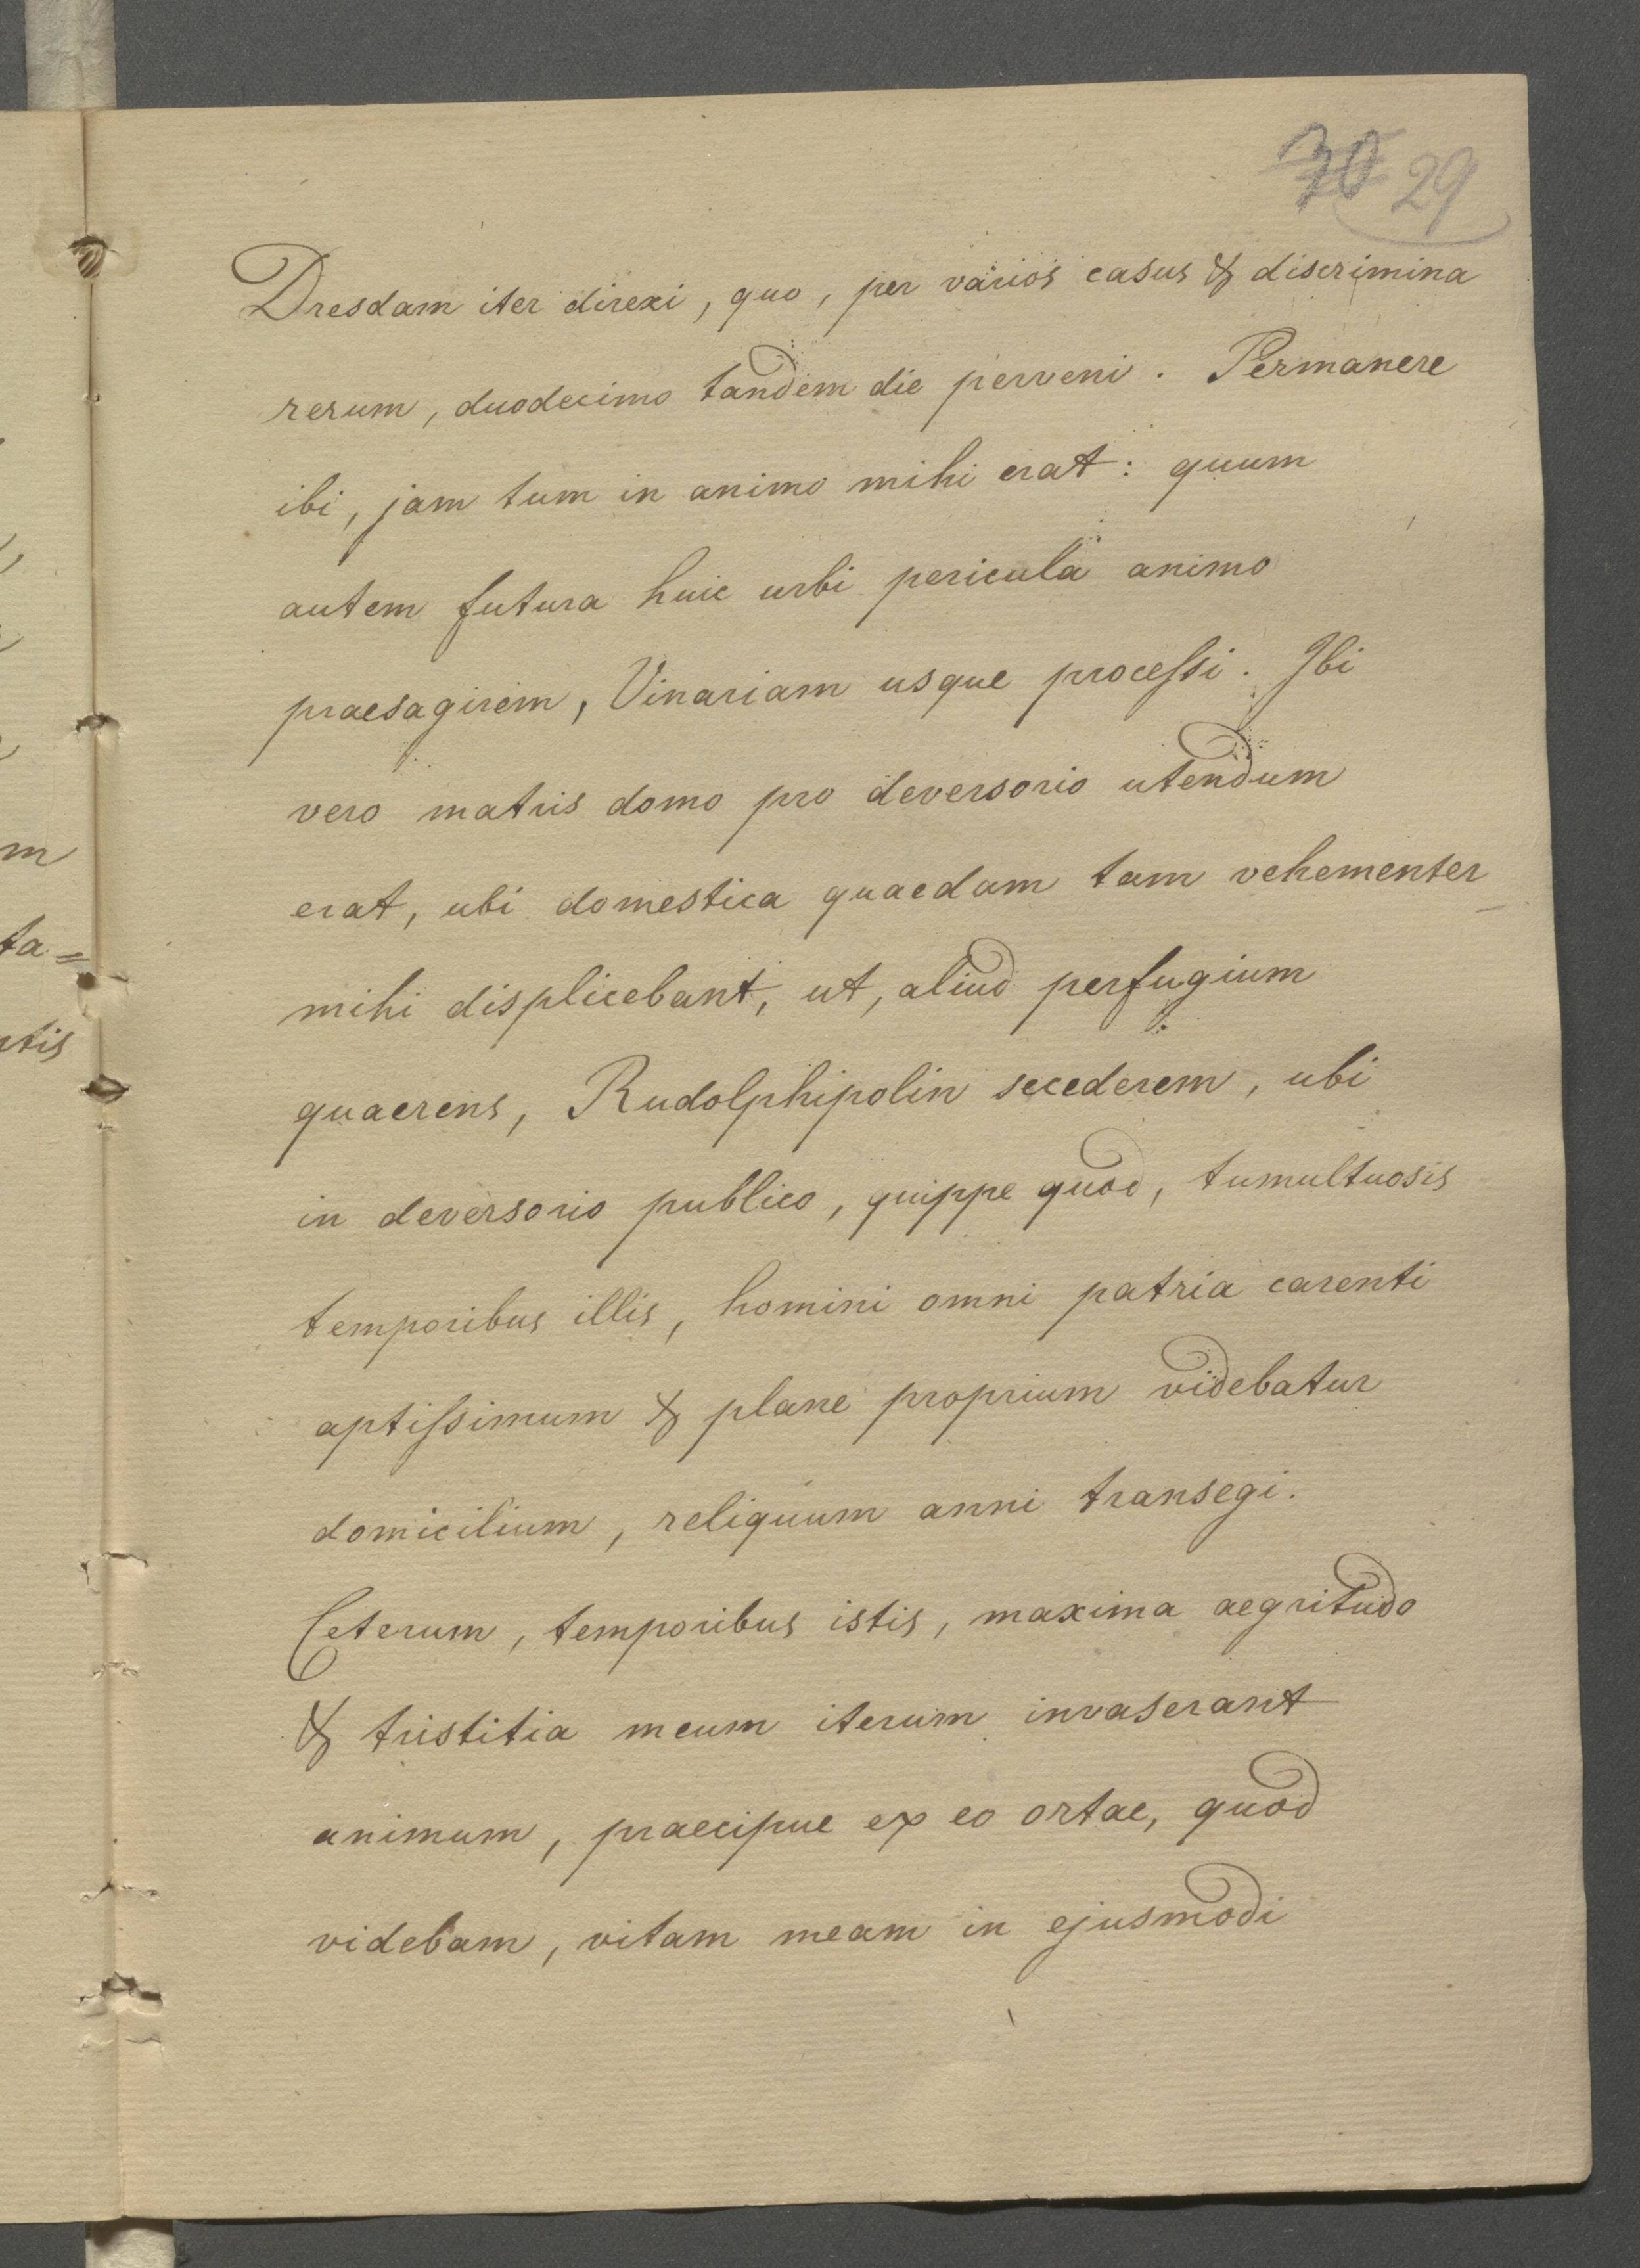 30 29
Dresdam iter direxi, quo, per varios casus & discrimina
rerum, duodecimo tandem die perveni. Permanere
ibi, jam tum in animo mihi erat: quum
autem futura huic urbi pericula animo
praesagirem, Vinariam usque processi. Ibi
vero matris domo pro deversorio utendum
erat, ubi domestica quaedam tam vehementer
mihi displicebant, ut, aliud perfugium
quaerens, Rudolphipolin secederem, ubi
in deversorio publico, quippe quod, tumultuosis
temporibus illis, homini omni patria carenti
aptissimum & plane proprium videbatur
domicilium, reliquum anni transegi.
Ceterum, temporibus istis, maxima aegritudo
& tristitia meum iterum invaserant
animum, praecipue ex eo ortae, quod
videbam, vitam meam in ejusmodi